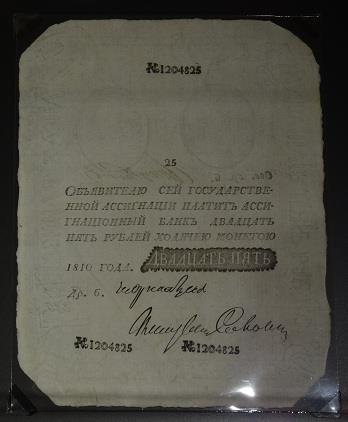 №1204825
25
Объявителю сей государстве-
нной ассигнаціи платитъ асси-
гнаціонный банкъ двадцать
пять рублей ходячею монетою
1810 года. Двадцать пять
№1204825 №1204825